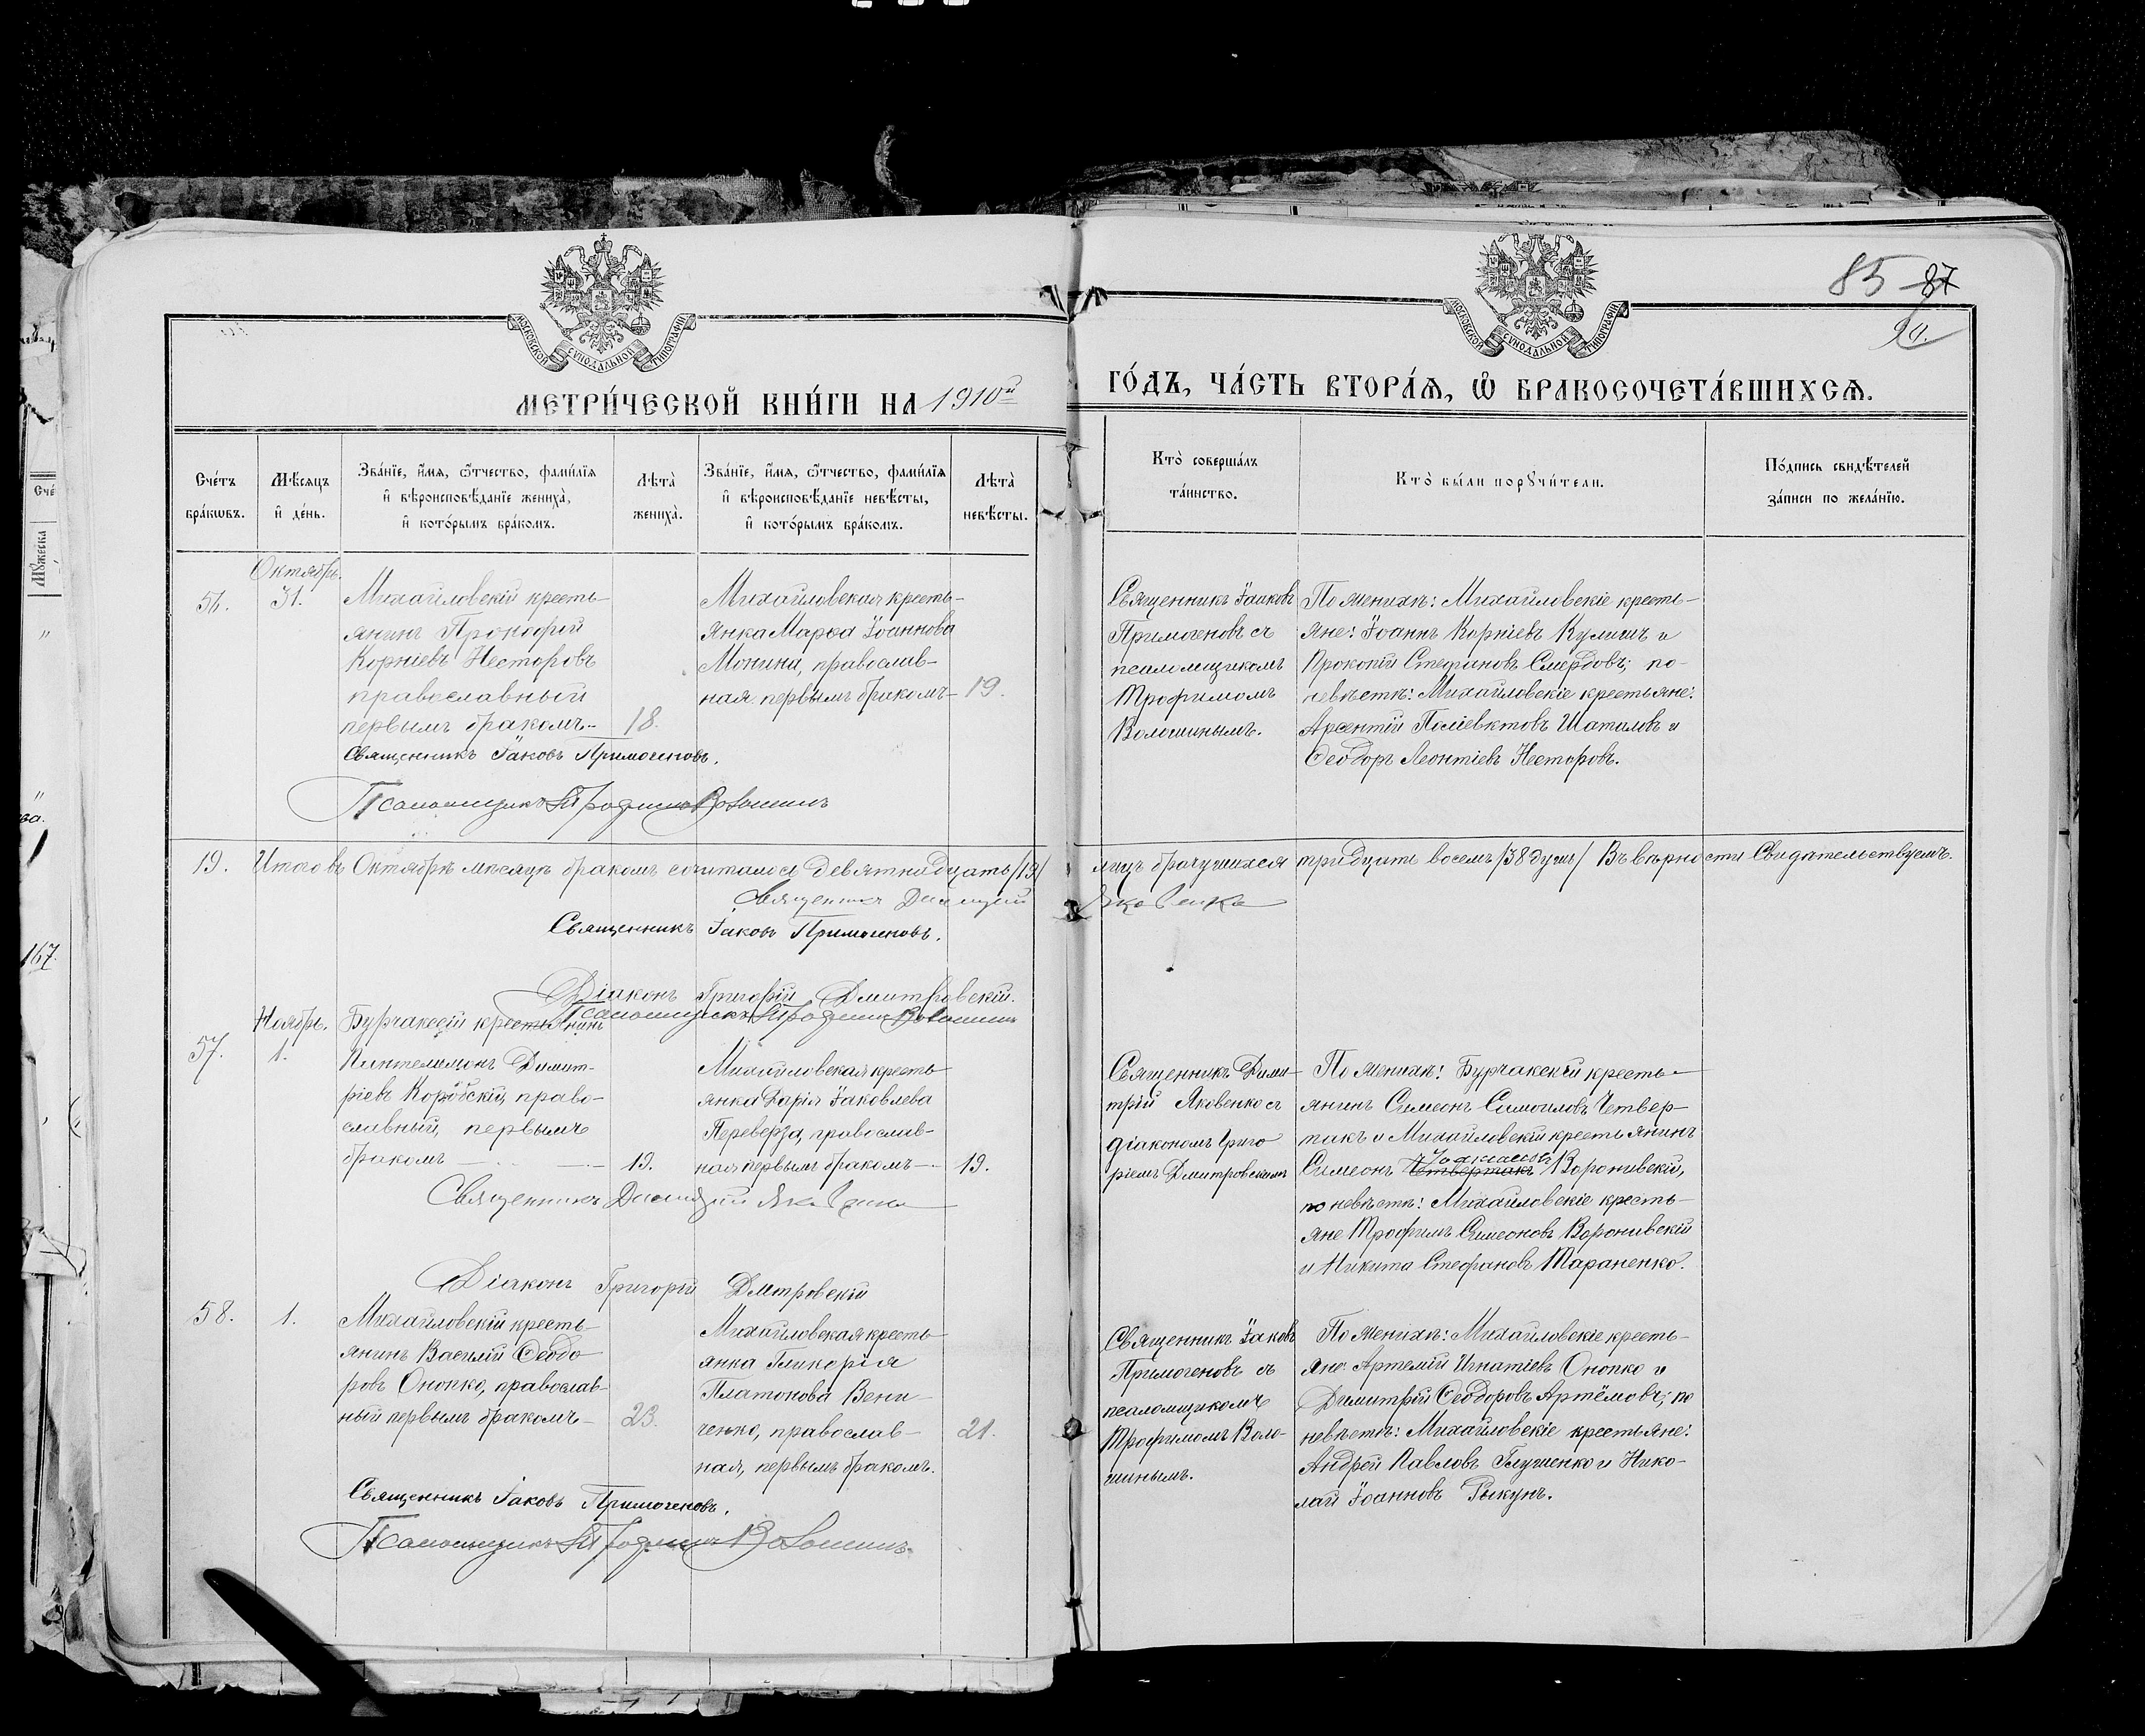 85 87
90.
МОСКОВСКОЙ СѴНОДАЛЬНОЙ ТИПОГРАФІИ
МОСКОВСКОЙ СѴНОДАЛЬНОЙ ТИПОГРАФІИ
МЕТРИ́ЧЕСКОЙ КНИ́ГИ НА 1910й
ГО́ДЪ, ЧА́СТЬ ВТОРА́Ѧ, Ѡ҆ БРАКОСОЧЕТА́ВШИХСѦ.
Сче́тъ
бра́кѡвъ.
Мѣ́сѧцъ
и҆ де́нь.
Зва́нїе, и҆́мѧ, ѻ҆́тчество, фами́лїѧ
и҆ вѣроисповѣ́данїе жениха̀,
и҆ кото́рымъ бра́комъ.
Лѣта̀
жениха̀.
Зва́нїе, и҆́мѧ, ѻ҆́тчество, фами́лїѧ
и҆ вѣроисповѣ́данїе невѣ́сты,
и҆ кото́рымъ бра́комъ.
Лѣта̀
невѣ́сты.
Кто̀ соверша́лъ
та́инство.
Кто̀ бы́ли порꙋчи́тели.
По́дпись свидѣ́телей
за́писи по жела́нїю.
Октябрь.
56.
31.
Михайловскій кресть-
янинъ Прокофій
Корніевъ Несторовъ
православный
первымъ бракомъ-
18.
Михайловская кресть-
янка Марѳа Іоаннова
Монина, православ-
ная первымъ бракомъ-
19.
Священникъ Іаковъ
Примогеновъ съ
псаломщикомъ
Трофимомъ
Волошинымъ.
По женихѣ: Михайловскіе кресть-
яне: Іоаннъ Корніевъ Кулишъ и
Прокопій Стефановъ Смердовъ; по-
невѣстѣ: Михайловскіе крестьяне:
Арсентій Поліевктовъ Шаталовъ и
Ѳеодоръ Леонтіевъ Несторовъ.
Священникъ Іаковъ Примогеновъ.
Псаломщикъ Трофимъ Волошинъ
19. Итого въ Октябрѣ мѣсяцѣ бракомъ сочиталось девятнадцать /19/ лицъ брачущихся тридцать восемь /38 душъ/ Въ вѣрности свидѣтельствуемъ.
Священникъ Димитрій Яковенко
Священникъ Іаковъ Примогеновъ.
Діаконъ Григорій Дмитровскій.
Псаломщикъ Трофимъ Волошинъ
Ноябрь.
57.
1.
Бурчакскій крестьянинъ
Пантелимонъ Димит-
ріевъ Коробскій, право-
славный, первымъ
бракомъ
19.
Михайловская кресть-
янка Дарія Іаковлева
Переверза, православ-
ная первымъ бракомъ-
19.
Священникъ Дими-
трій Яковенко съ
діакономъ Григо
ріемъ Дмитровскимъ
По женихѣ: Бурчакскій кресть-
янинъ Симеонъ Самоиловъ Четвер-
такъ и Михайловскій крестьянинъ
Симеонъ Четвертакъ Воронивскій,
по невѣстѣ: Михайловскіе кресть-
яне Трофимъ Симеоновъ Воронивскій
и Никита Стефановъ Тараненко.
Священникъ Димитрій Яковенко
Діаконъ Григорій Дмтровскій
58.
1.
Михайловскій кресть-
янинъ Василій Ѳеодо
ровъ Онопко, православ-
ный первымъ бракомъ-
23.
Михайловская кресть-
янка Гликерія
Платонова Вени-
ченко, православ-
ная, первымъ бракомъ.
21.
Священникъ Іаковъ
Примогеновъ съ
псаломщикомъ
Трофимомъ Воло-
шинымъ.
По женихѣ: Михайловскіе кресть-
яне: Артемій Игнатіевъ Онопко и
Димитрій Ѳеодоровъ Артёмовъ; по
невѣстѣ: Михайловскіе крестьяне:
Андрей Павловъ Глущенко и Нико-
лай Іоанновъ Рыкунъ.
Священникъ Іаковъ Примогеновъ.
Псаломщикъ Трофимъ Волошинъ.